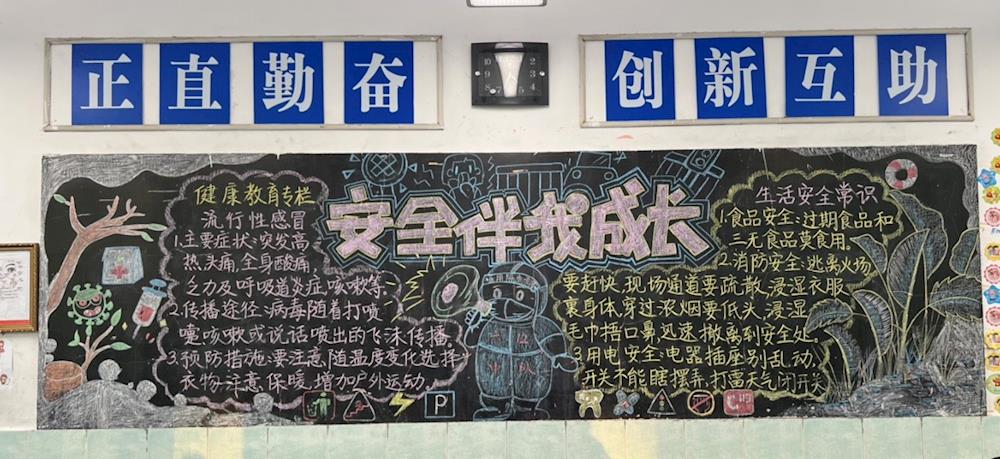 正直勤奋
创新互助
安全伴我成长
健康教育专栏
流行性感冒
1.主要症状:突发高
热,头痛,全身酸痛
乏力及呼吸道炎症,咳嗽等
2.传播途径:病毒随着打喷
嚏咳嗽或说话喷出的飞沫传播。
3.预防措施:要注意,随温度变化选择
衣物,注意,保暖,增加户外运动。
生活安全常识
1.食品安全:过期食品和
三无食品莫食用。
2.消防安全:逃离火场
要赶快,现场通道要疏散,浸湿衣服
裹身体,穿过浓烟要低头,浸湿
毛巾捂口鼻,迅速撤离到安全处。
3.用电安全:电器插座别乱动,
开关不能瞎摆弄,打雷天气闭开关
P